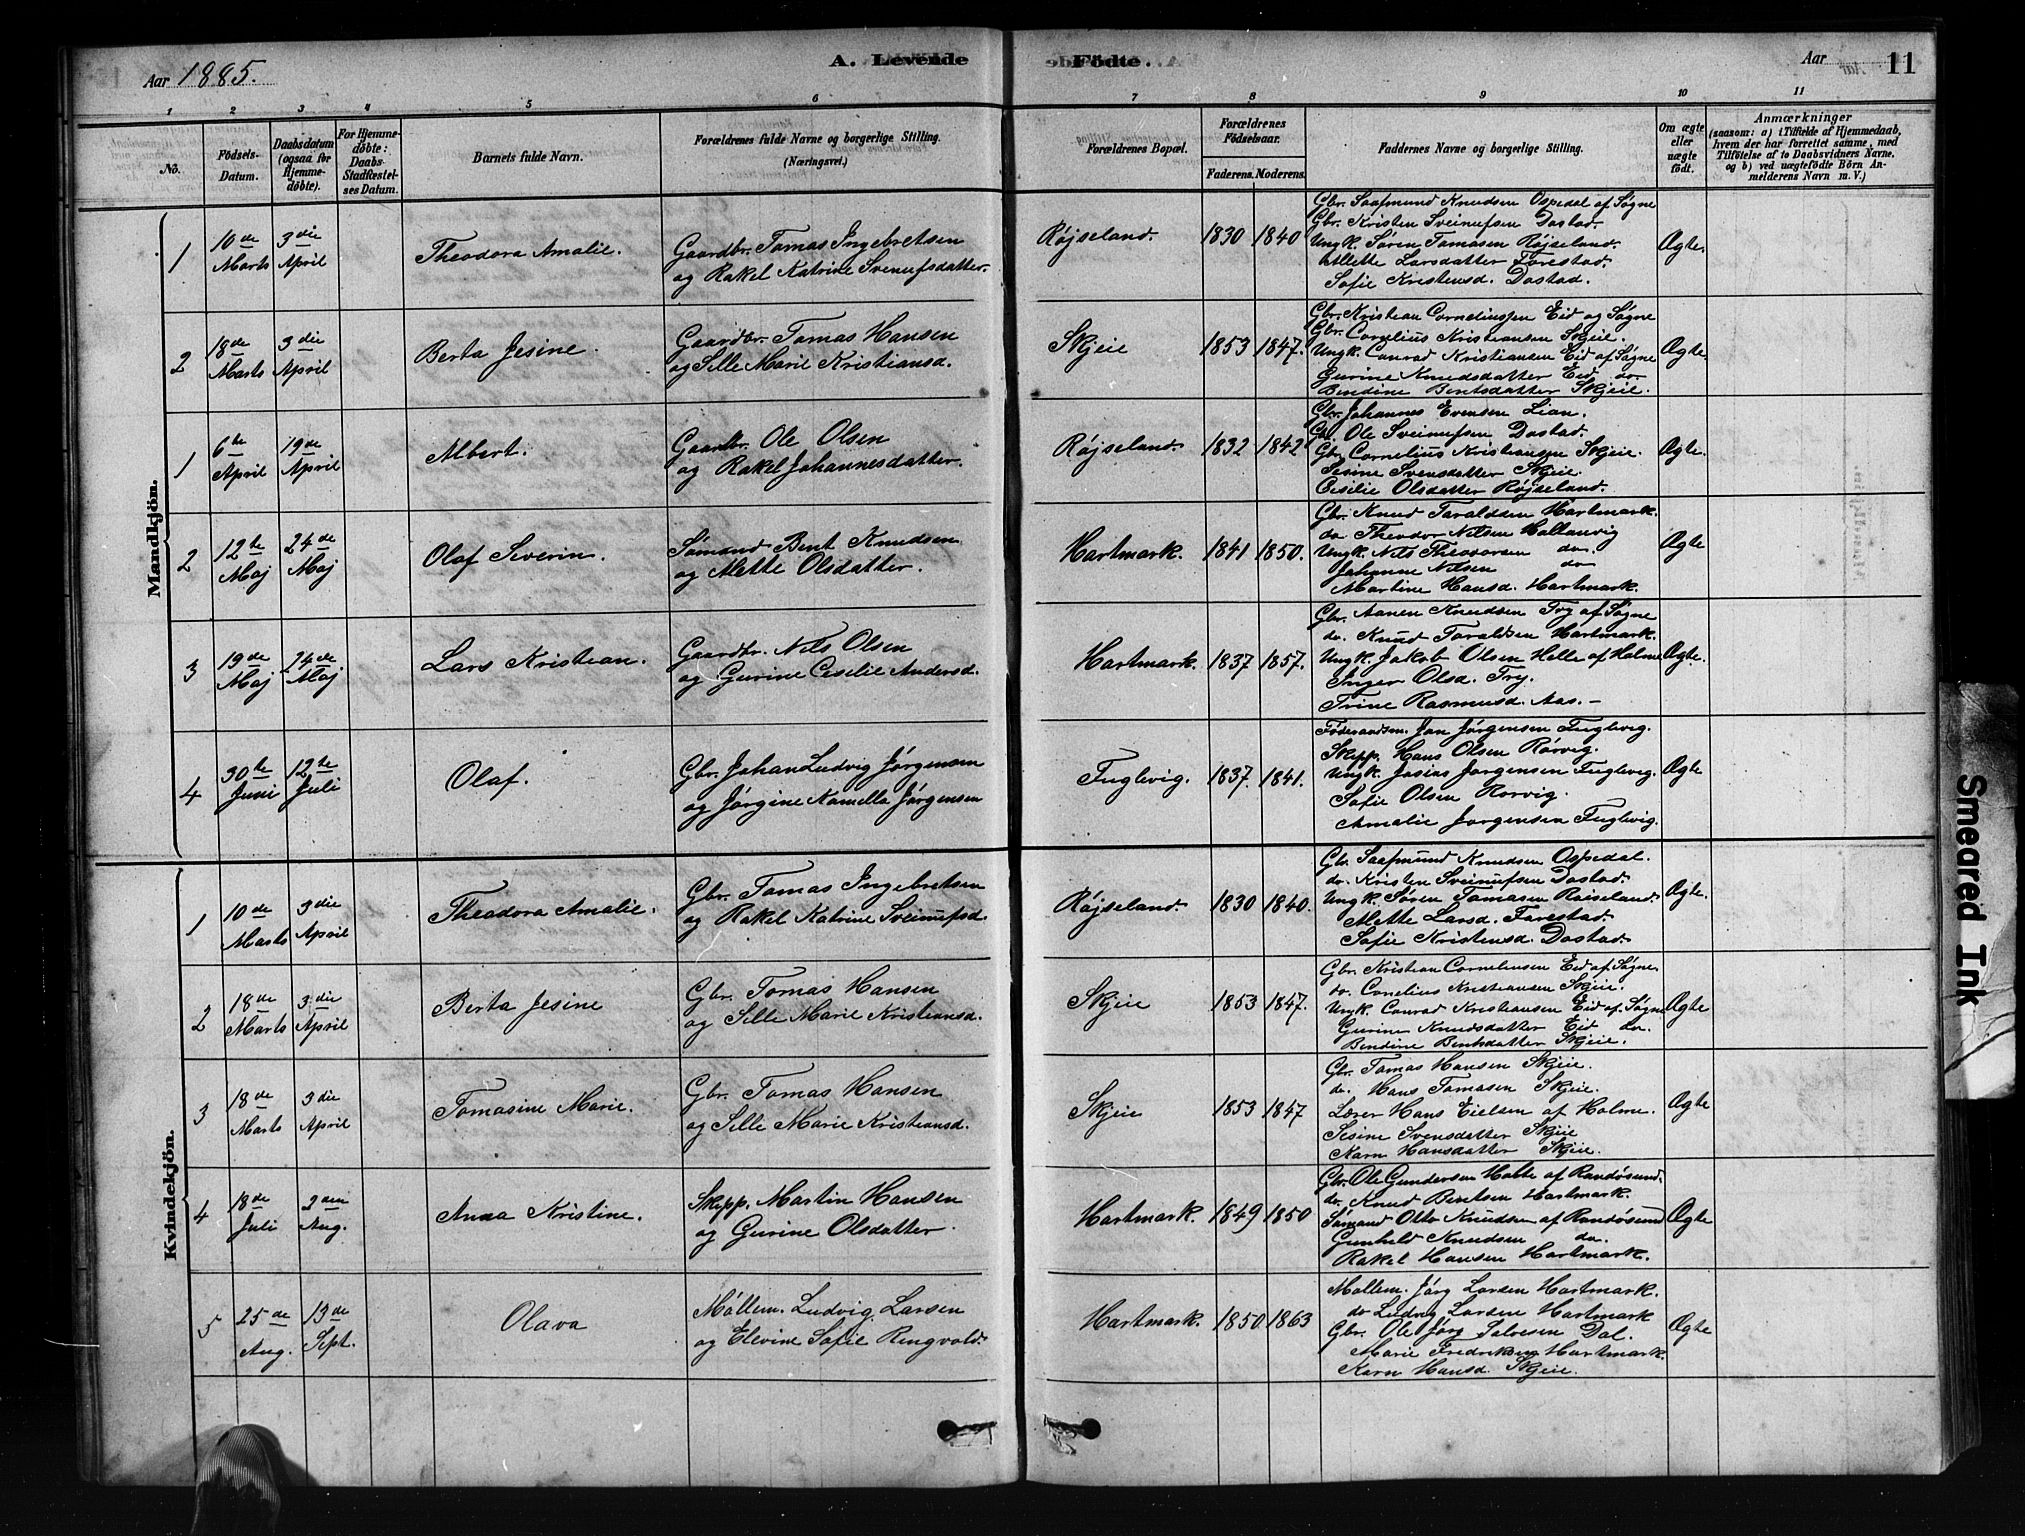 Aar 1885.
A. Levende
Födte.
Aar
11
1
2
3
4
5
6
7
8
9
10
11
No.
Födsels-
Datum.
Daabsdatum
(ogsaa for
Hjemme-
döbte).
For Hjemme-
döbte:
Daabs-
Stadfæstel-
ses Datum.
Barnets fulde Navn.
Forældrenes fulde Navne og borgerlige Stilling.
(Næringsvei.)
Forældrenes Bopæl.
Forældrenes
Födselsaar.
Faderens. Moderens.
Faddernes Navne og borgerlige Stilling.
Om ægte
eller
uægte
födt.
Anmærkninger
(saasom: a) i Tilfælde af Hjemmedaab,
hvem der har forrettet samme, med
Tilföielse af to Daabsvidners Navne,
og b) ved uægtefödte Börn An-
melderens Navn m. V.)
Mandkjön.
1
10de Marts
3die April
Theodora Amalie.
Gaardbr. Tomas Ingebretsen
og Rakel Katrine Svenufsdatter.
Røjseland.
1830
1840
Gbr. Saafmund Knudsen Ospedal af Søgne
Gbr. Kristen Sveinufsen Dastad.
Ungk. Søren Tomasen Røjseland.
Alette Larsdatter Farestad.
Sofie Kristensd. Dastad.
Ægte.
2
18de Marts
3die April
Berta Jesine.
Gaardbr. Tomas Hansen
og Sille Marie Kristiansd.
Skjeie
1853
1847.
Gbr. Kristian Corneliussen Eid og Søgne
Gbr. Cornelius Kristiansen Skjeie.
Ungk. Conrad Kristiansen Eid af Søgne
Gurine Knudsdatter Eid do
Bendine Bentsdatter Skjeie.
Ægte.
1
6te April
19de April
Albert.
Gaardbr. Ole Olsen
og Rakel Johannesdatter.
Røjseland.
1832
1842
Gbr. Johannes Evensen Lian.
Gbr. Ole Sveinufsen Dastad.
Gbr. Cornelius Kristiansen Skjeie.
Sesine Svensdatter Skjeie.
Cesilie Olsdatter Røjseland.
Ægte.
2
12te Maj
24de Maj
Olaf Severin.
Sømand Bent Knudsen
og Mette Olsdatter.
Hartmark.
1841
1850.
Gbr. Knud Taraldsen Hartmark.
do Theodor Nilsen Hallanvig
Ungk. Nils Theodorsen do.
Johanne Nilsen do
Martine Hansd. Hartmark.
Ægte
3
19de Maj
24de Maj
Lars Kristian.
Gaardbr. Nils Olsen
og Gurine Cesilie Andersd.
Hartmark.
1837
1857.
Gbr. Aanen Knudsen Try af Søgne
do. Knud Taraldsen Hartmark.
Ungk. Jakob Olsen Helle af Holme
Inger Olsd. Try.
Trine Rasmusd. Aas.-
Ægte.
4
30te Juni
12te Juli
Olaf.
Gbr. Johan Ludvig Jørgensen
og Jørgine Kamella Jørgensen
Fuglevig.
1837.
1841.
Føderaadsm. Jan Jørgensen Fuglevig.
Skipp. Hans Olsen Rørvig.
Ungk. Josias Jørgensen Fuglevig.
Sofie Olsen Rørvig.
Amalie Jørgensen Fuglevig.
Ægte
Kvindekjön.
1
10de Marts
3die April
Theodora Amalie.
Gbr. Tomas Ingebretsen
og Rakel Katrine Sveinufsd.
Røjseland
1830
1840.
Gbr. Saafmund Knudsen Ospedal.
do. Kristen Sveinufsen Dastad.
Ungk. Søren Tomasen Røiseland.
Alette Larsd. Farestad
Sofie Kristensd. Dastad.
Ægte.
2
18de Marts
3die April
Berta Jesine
Gbr. Tomas Hansen
og Sille Marie Kristiansd.
Skjeie
1853
1847.
Gbr. Kristian Cornelinsen Eid af Søgne.
do. Cornelius Kristiansen Skjeie.
Ungk. Conrad Kristiansen Eid af Søgne
Gurine Knudsdatter Eid do.
Bendine Bentsdatter Skjeie.
Ægte
3
18de Marts
3die April
Tomasine Marie.
Gbr. Tomas Hansen
og Sille Marie Kristiansd.
Skjeie
1853
1847
Gbr. Tomas Hansen Skjeie.
do. Hans Tomasen Skjeie.
Lærer Hans Eielsen af Holme.
Sesine Svensdatter Skjeie
Karn Hansdatter Skjeie.
Ægte
4
18de Juli
2den Aug.
Anna Kristine.
Skipp. Martin Hansen
og Gurine Olsdatter.
Hartmark.
1849
1850
Gbr. Ole Gundersen Holte af Randøsund.
do. Knud Bentsen Hartmark.
Sømand Otto Knudsen af Randøsund
Gunhild Knudsen do.
Rakel Hansen Hartmark.
Ægte
5
25de Aug.
13de Sept.
Olava
Møllem. Ludvig Larsen
og Elevine Sofie Ringvold.
Hartmark.
1850
1863
Møllem. Jørg Larsen Hartmark.
do Ludvig Larsen Hartmark
Gbr. Ole Jørg Salvesen Dal.
Marie Fredriksen Hartmark.
Karn Hansd. Skjeie.
Ægte
Smeared Ink